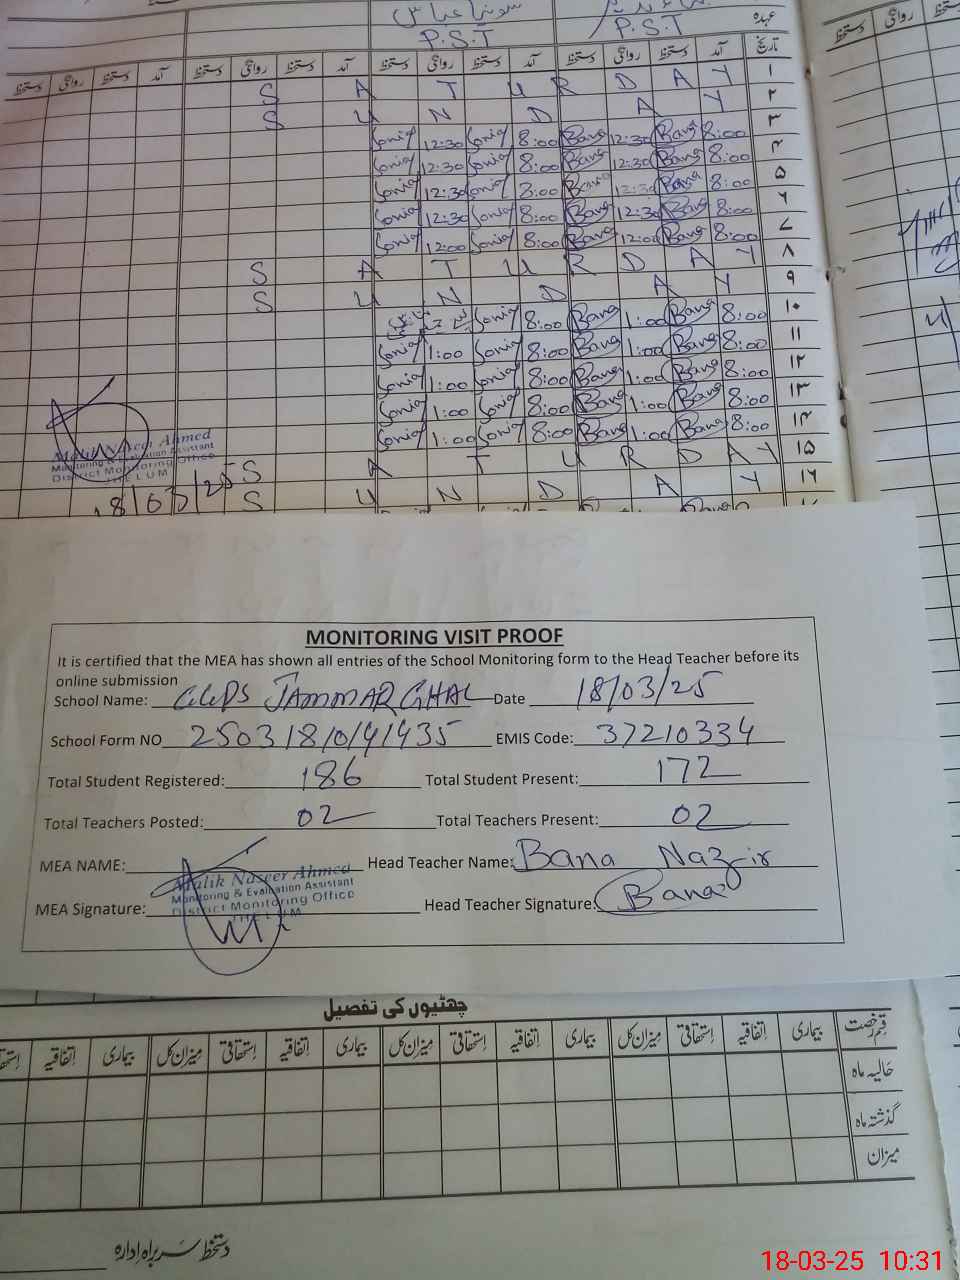 سونیا عباس
عہدہ P.S.T P.S.T
تاریخ آمد دستخط روانگی دستخط آمد دستخط روانگی دستخط آمد دستخط روانگی دستخط آمد دستخط روانگی دستخط
۱ S A T U R D A Y
۲ S U N D A Y
۳ 8:00 Bana 12:30 Bana 8:00 Sonia 12:30 Sonia
۴ 8:00 Bana 12:30 Bana 8:00 Sonia 12:30 Sonia
۵ 8:00 Bana 12:30 Bana 8:00 Sonia 12:30 Sonia
۶ 8:00 Bana 12:30 Bana 8:00 Sonia 12:30 Sonia
۷ 8:00 Bana 12:00 Bana 8:00 Sonia 12:00 Sonia
۸ S A T U R D A Y
۹ S U N D A Y
۱۰ 8:00 Bana 1:00 Bana 8:00 Sonia
۱۱ 8:00 Bana 1:00 Bana 8:00 Sonia 1:00 Sonia
۱۲ 8:00 Bana 1:00 Bana 8:00 Sonia 1:00 Sonia
۱۳ 8:00 Bana 1:00 Bana 8:00 Sonia 1:00 Sonia
۱۴ 8:00 Bana 1:00 Bana 8:00 Sonia 1:00 Sonia
۱۵ S A T U R D A Y
۱۶ S U N D A Y
Malik Naseer Ahmed
Monitoring & Evaluation Assistant
District Monitoring Office
JHELUM
18/03/25
MONITORING VISIT PROOF
It is certified that the MEA has shown all entries of the School Monitoring form to the Head Teacher before its
online submission
School Name: GGPS JAMMARGHAL Date 18/03/25
School Form NO 2503180141435 EMIS Code: 37210334
Total Student Registered: 186 Total Student Present: 172
Total Teachers Posted: 02 Total Teachers Present: 02
MEA NAME: Head Teacher Name: Bana Nazir
Malik Naseer Ahmed
Monitoring & Evaluation Assistant
District Monitoring Office
JHELUM
MEA Signature: Head Teacher Signature: Bana
چھٹیوں کی تفصیل
قسم رخصت بیماری اتفاقیہ استحقاقی میزان کل بیماری اتفاقیہ استحقاقی میزان کل بیماری اتفاقیہ استحقاقی میزان کل بیماری اتفاقیہ
حالیہ ماہ
گذشتہ ماہ
میزان
دستخط سربراہ ادارہ
18-03-25 10:31